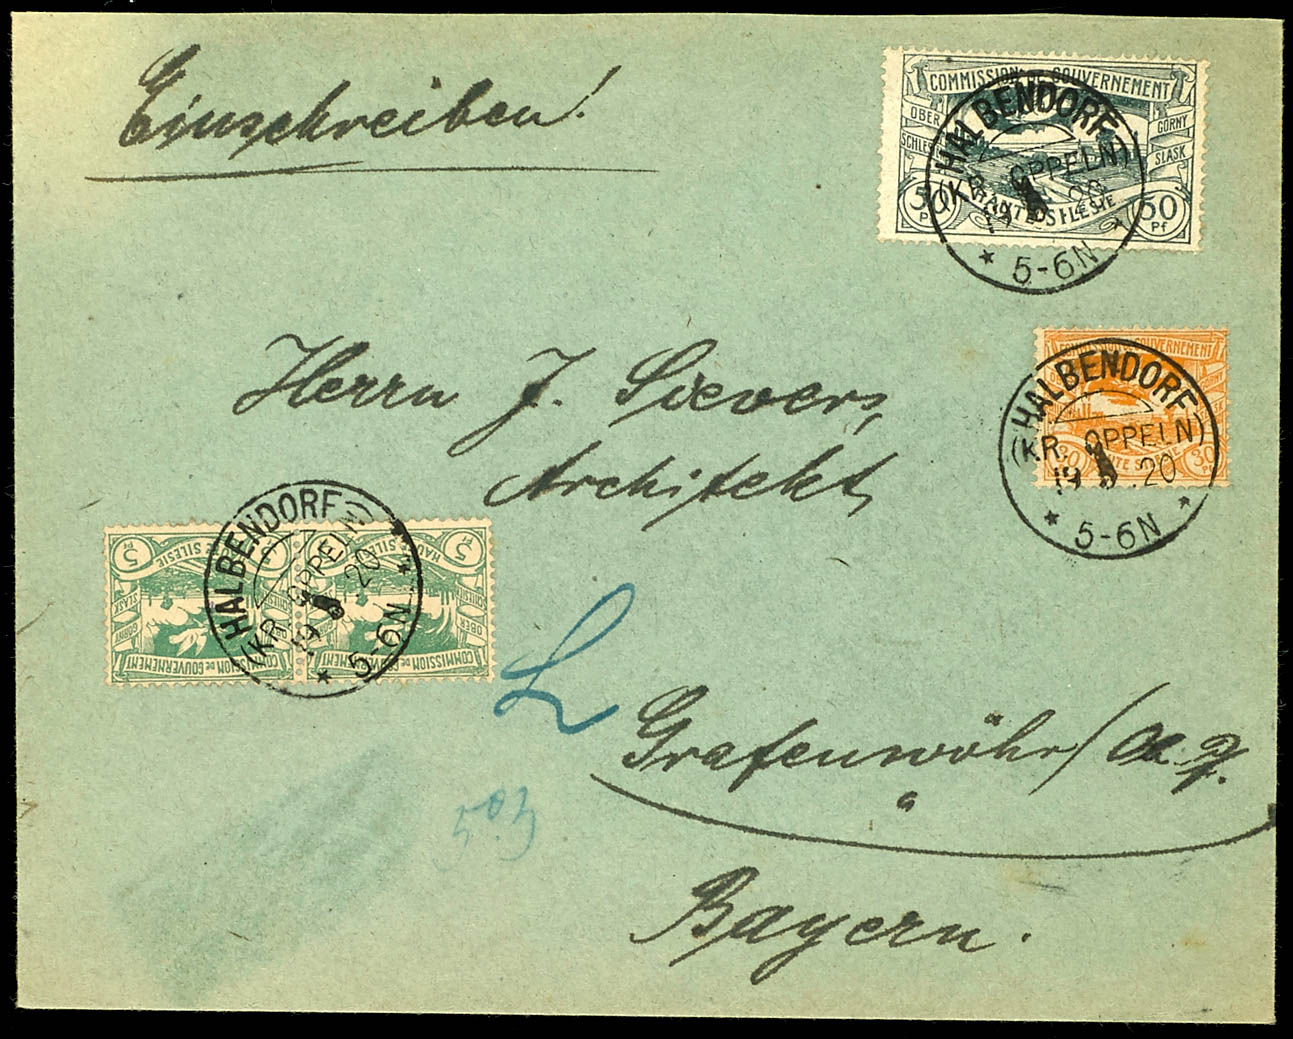 Einschreiben!
COMMISSION DE GOUVERNEMENT
OBER GORNY
SCHLES SLASK
HAUTE SILESIE
50 Pf 50 Pf
HALBENDORF
(KR. OPPELN)
* 5-6N *
Herrn J. Sievers,
Architekt,
COMMISSION DE GOUVERNEMENT
30 HAUTE SILESIE 30
HALBENDORF
(KR. OPPELN)
19 .20
* 5-6N *
5 SILESIE HAU 5
SLASK SCHLESIEN
GORNY OBER
COMMISSION DE GOUVERNEMENT COMMISSION DE GOUVERNEMENT
HALBENDORF
(KR. OPPELN)
19 .20
* 5-6N *
Grafenwöhr/
Bayern.